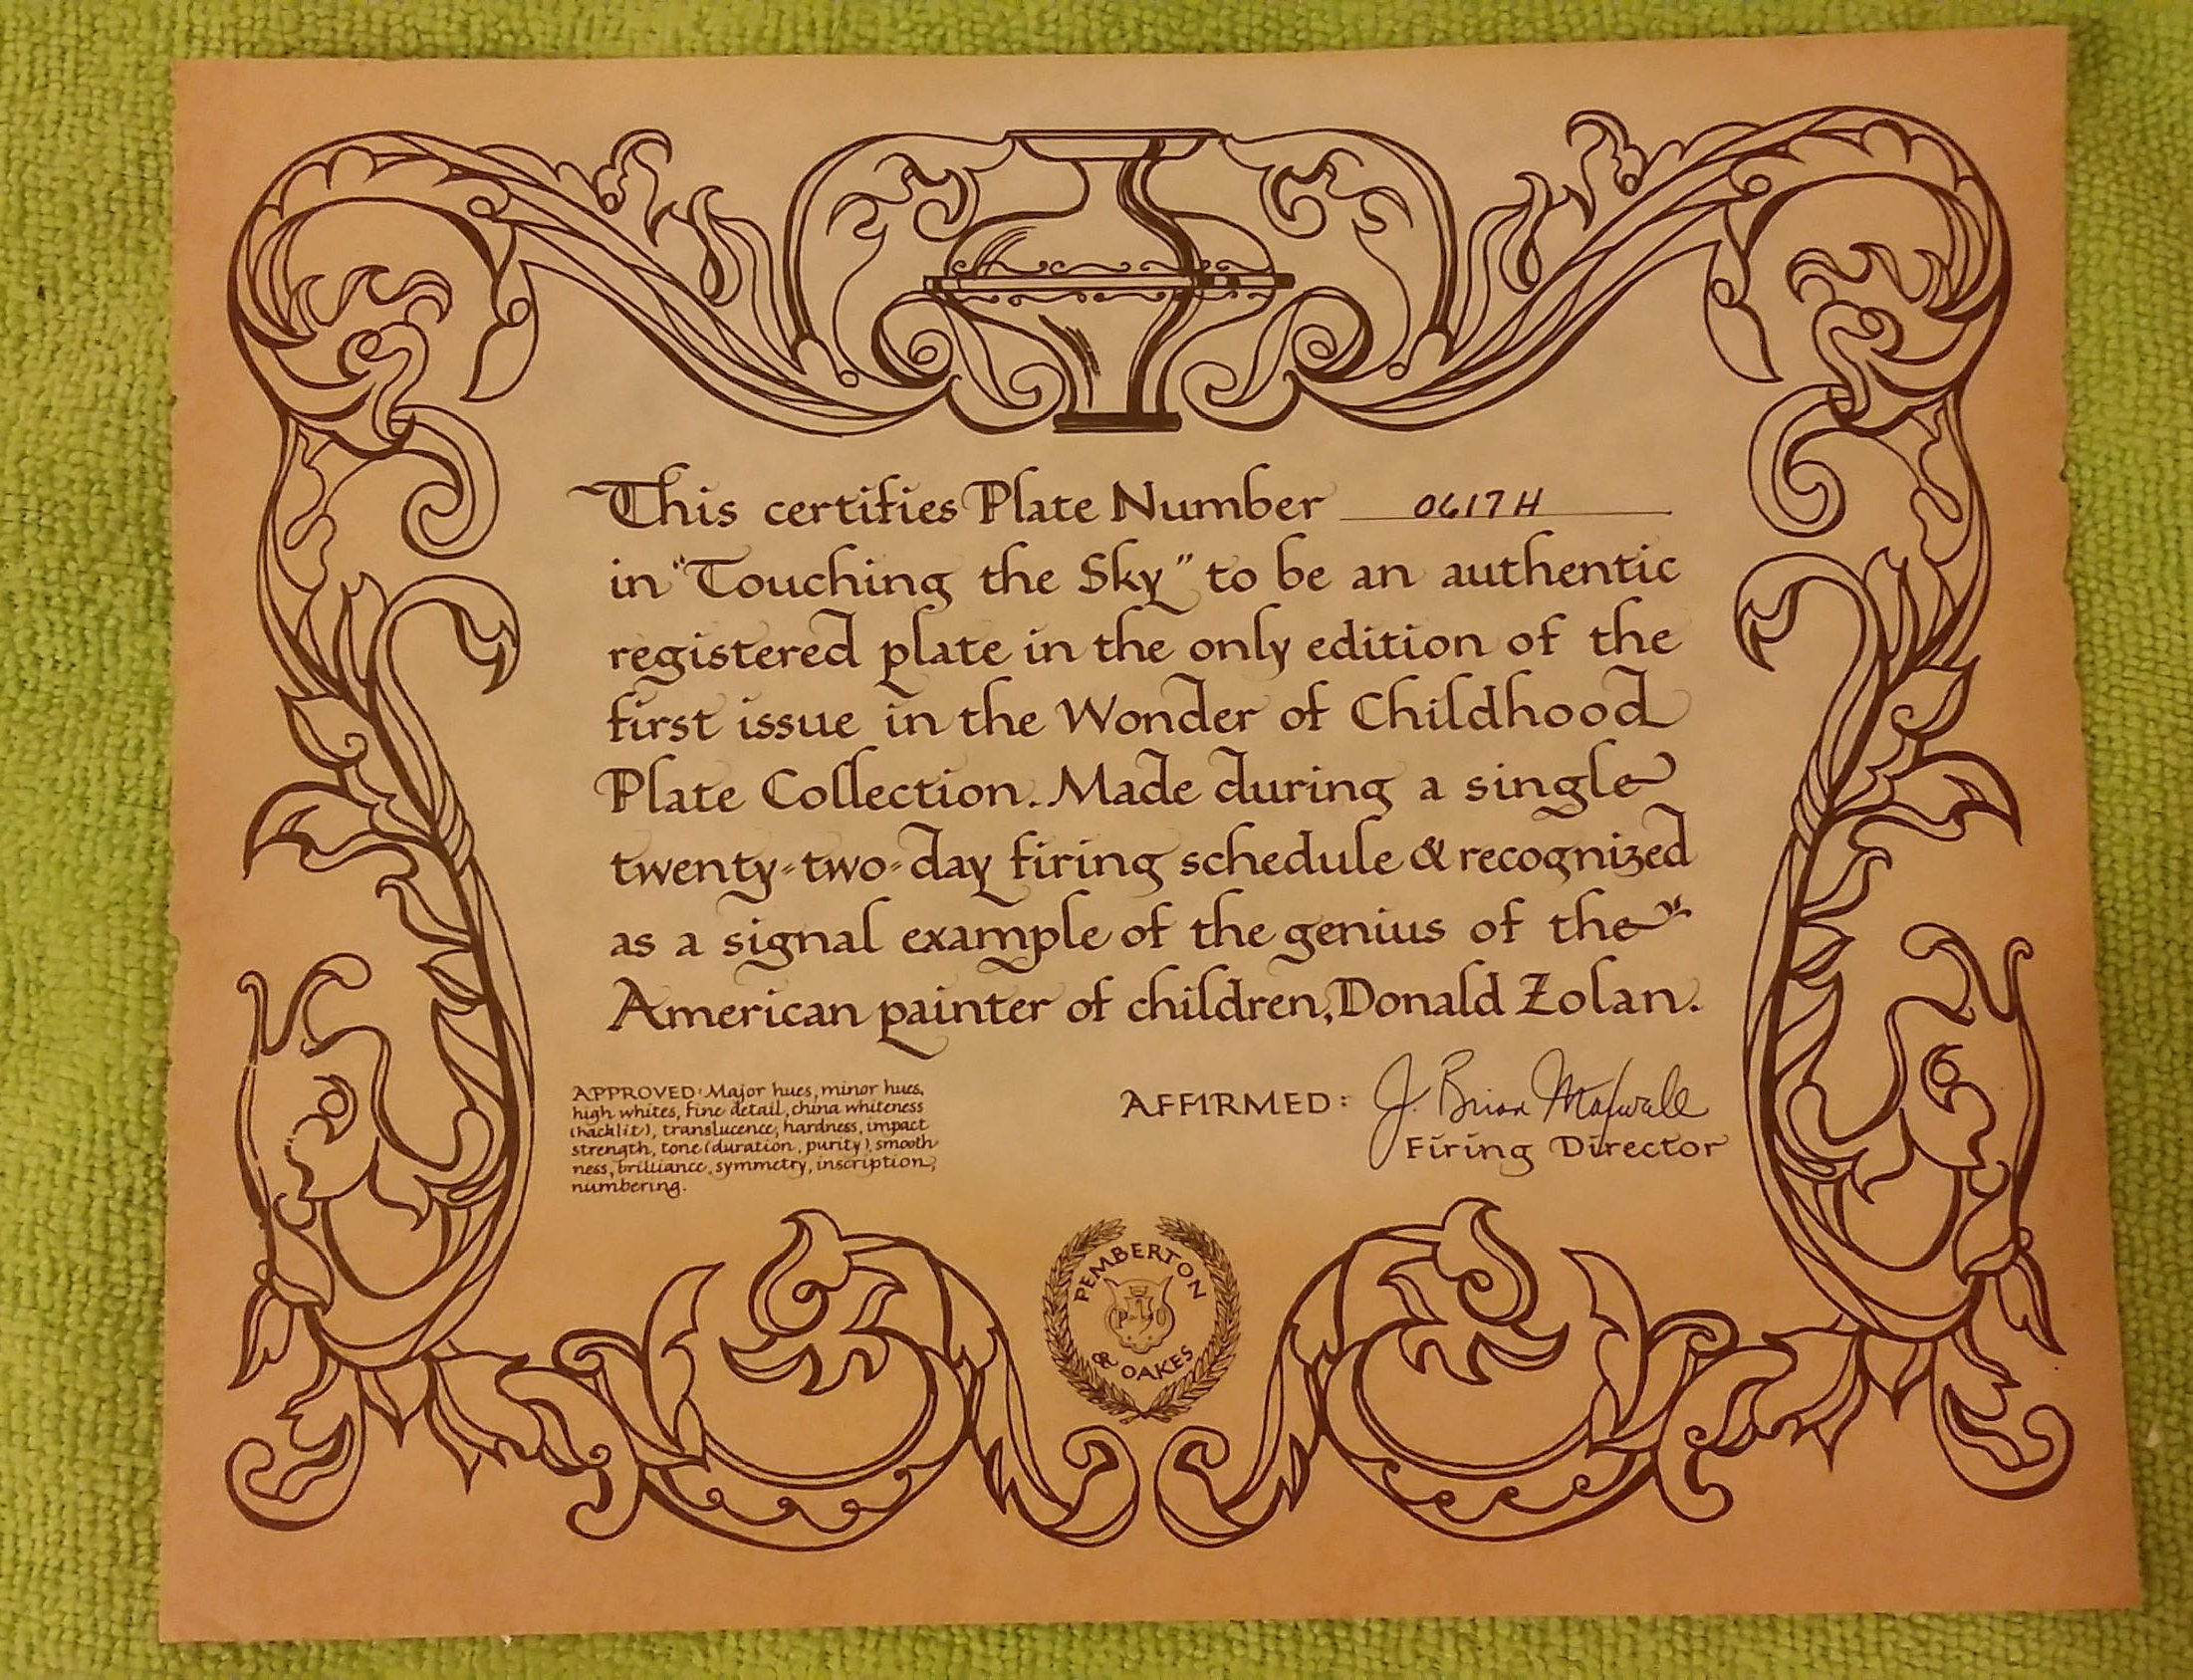 This certifies Plate Number 0617H
in "Touching the Sky" to be an authentic
registered plate in the only edition of the
first issue in the Wonder of Childhood
Plate Collection. Made during a single
twenty-two-day firing schedule & recognized
as a signal example of the genius of the
American painter of children, Donald Zolan.
APPROVED: Major hues, minor hues,
high whites, fine detail, china whiteness
(backlit), translucence, hardness, impact
strength, tone (duration, purity), smooth
ness, brilliance, symmetry, inscription,
numbering.
AFFIRMED: J. Brian
Firing Director
PEMBERTON
P O
& OAKES